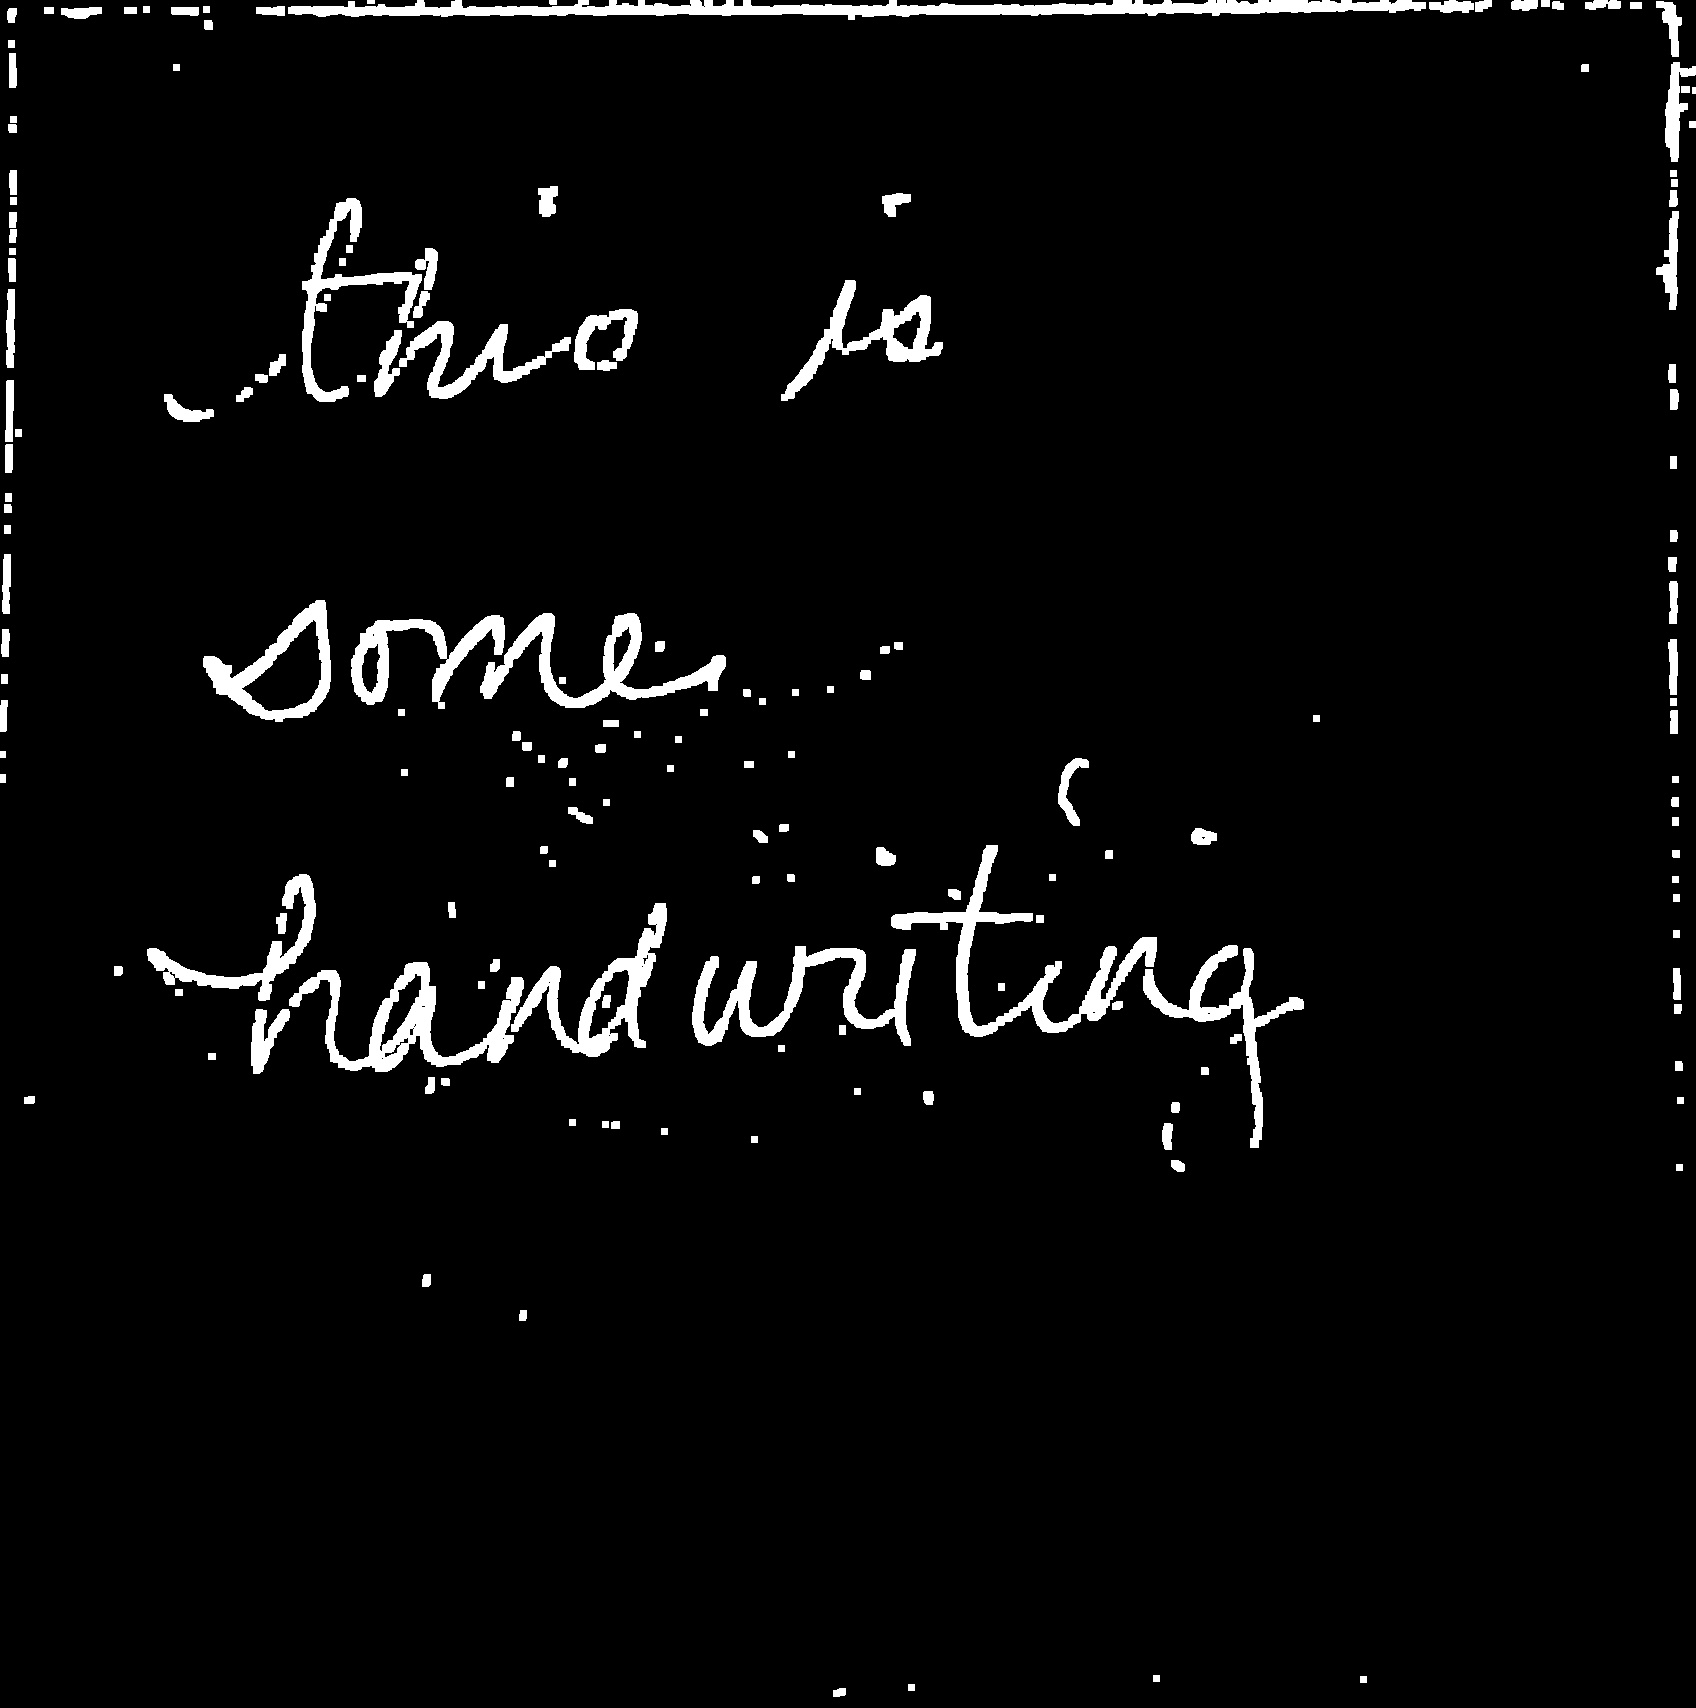 this is
some
handwriting